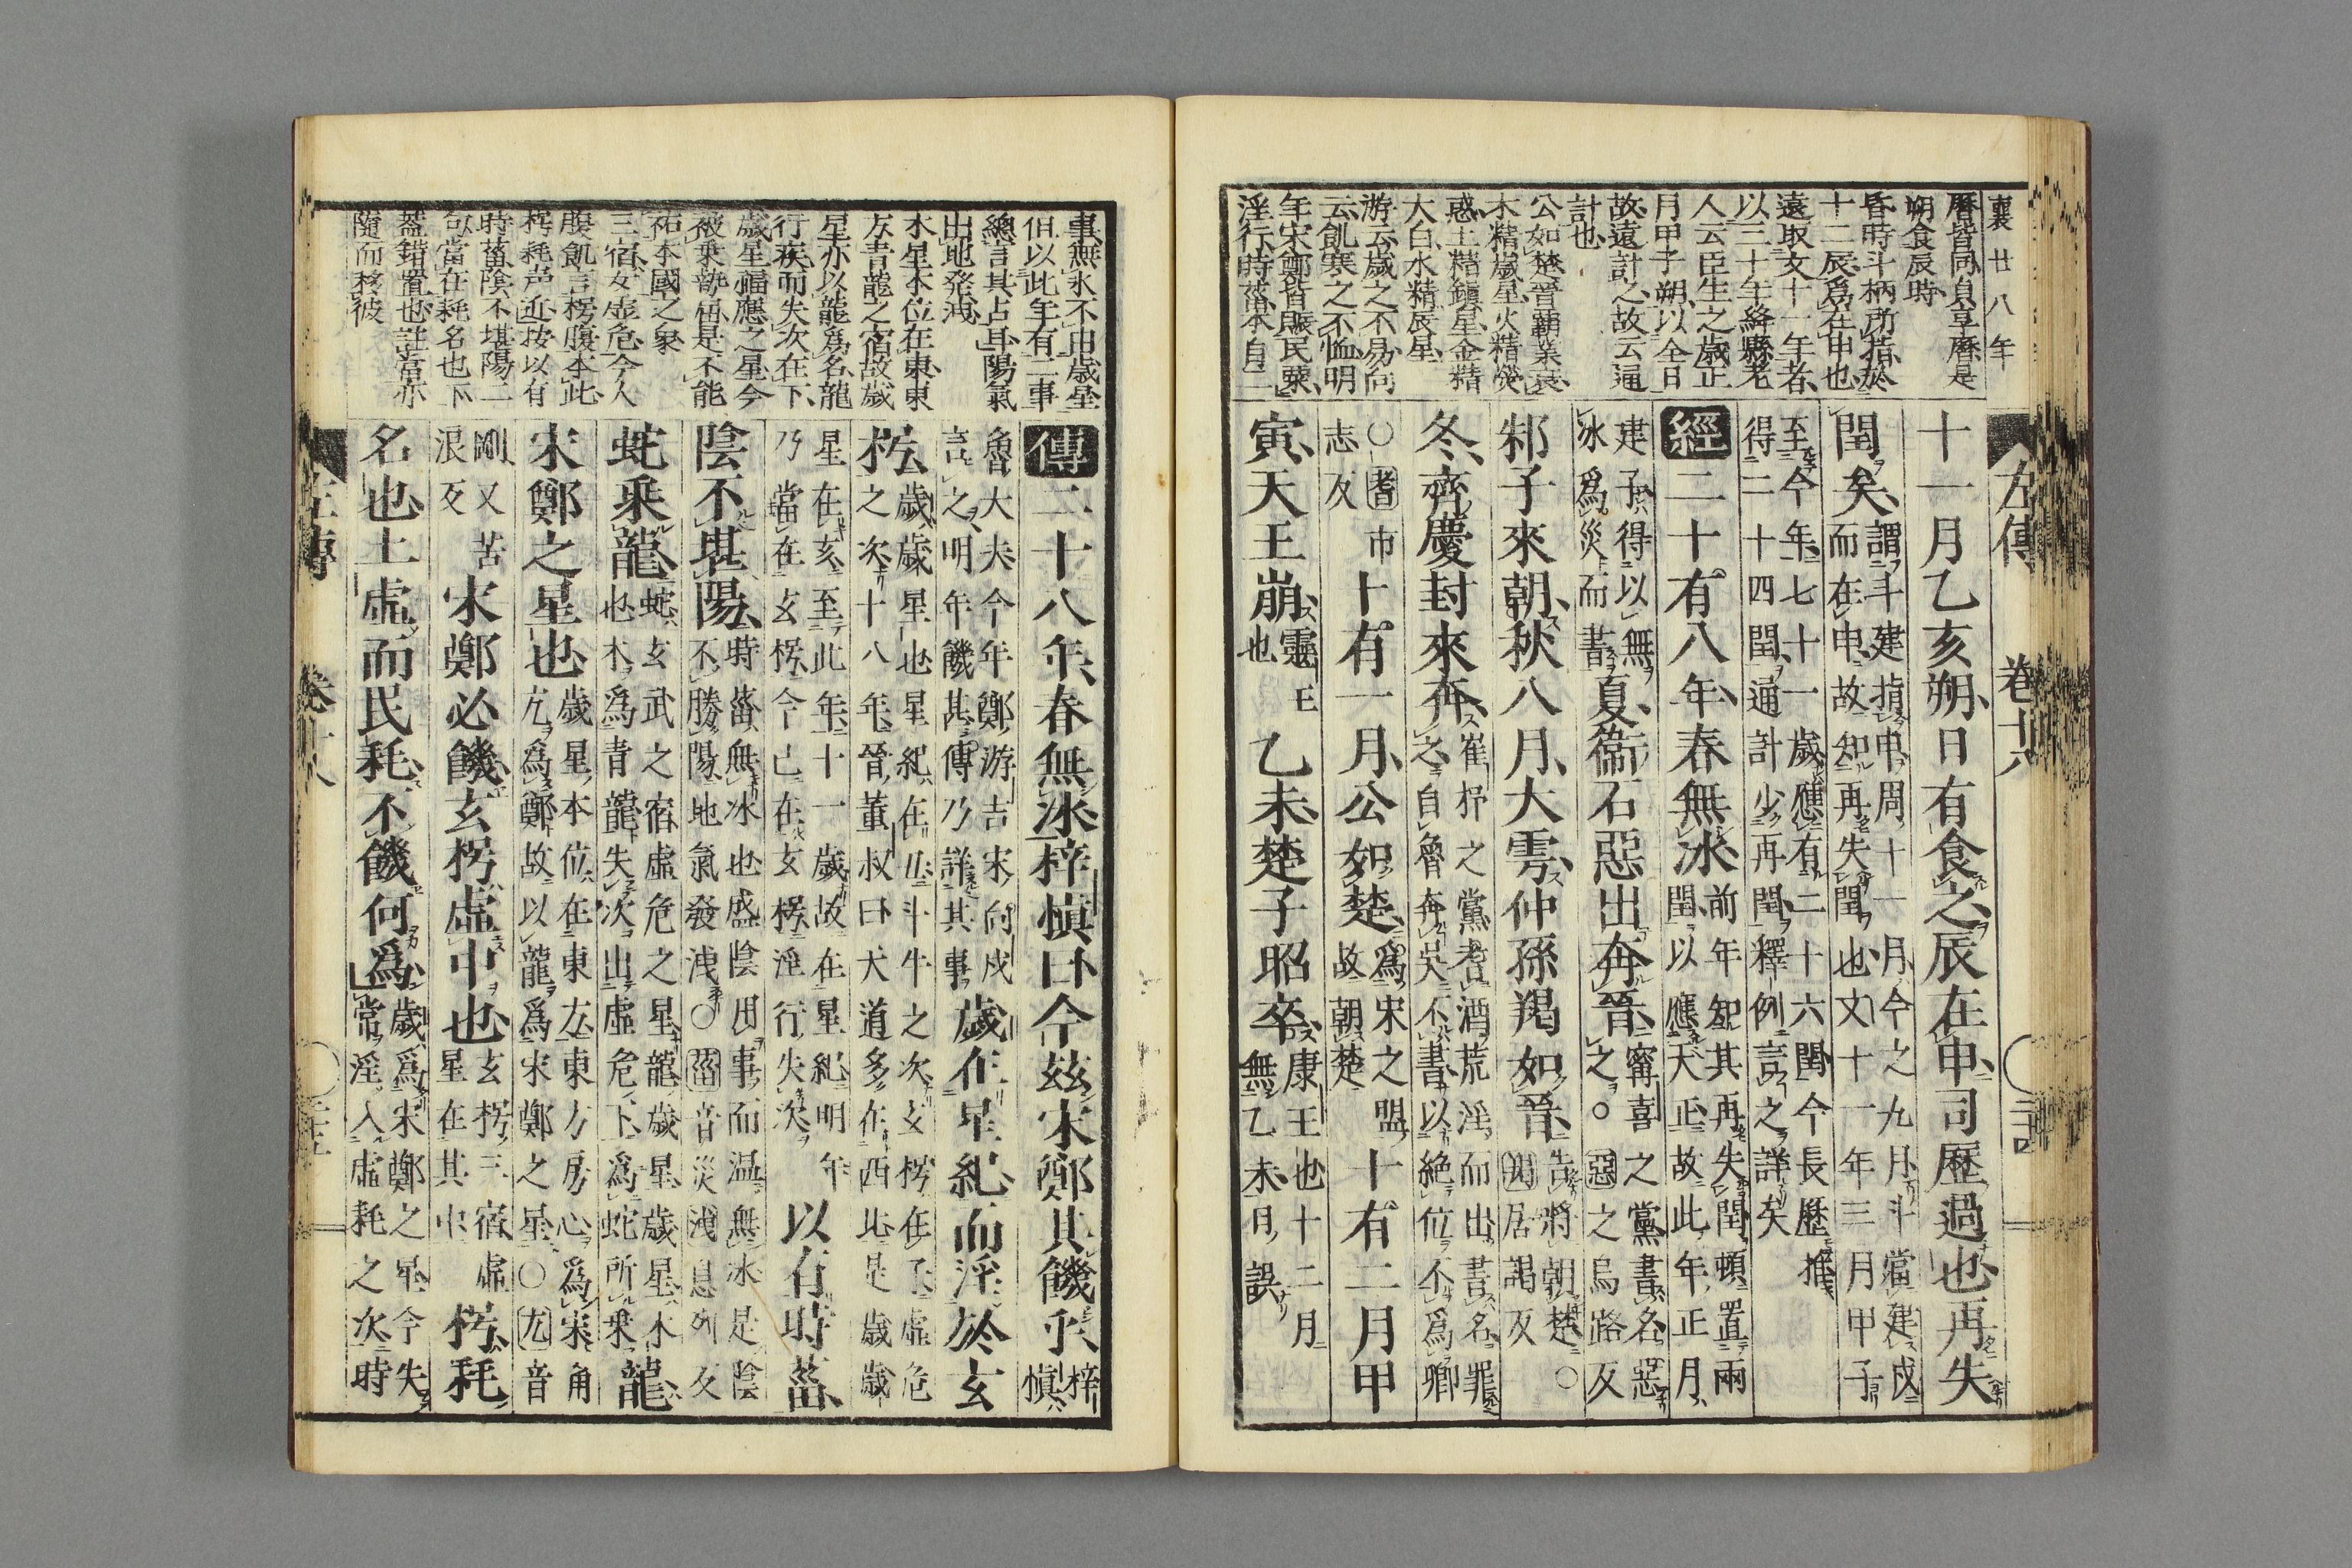 襄廿八年
曆皆同貞享曆是
朔食辰時
昏時斗柄所指於
十二辰爲在申也
遠取文十一年者
以三十年絳縣老
人云臣生之歲正
月甲子朔以全日
故遠計之故云通
計也
公如楚晉霸業衰
木精歲星火精熒
惑土精鎮星金精
大白水精辰星
游云歲之不易向
云飢寒之不恤明
年宋鄭皆賑民粟
淫行時菑本自二
左傳 卷十八
十一月乙亥朔日有食之辰在申司歷過也再失
閏矣謂斗建指申周十一月今之九月斗當建戌而在申故知再失閏也文十一年三月甲子
至今年七十一歲應有二十六閏今長歷推得二十四閏通計少再閏釋例言之詳矣
經二十有八年春無冰前年知其再失閏頓置兩閏以應天正故此年正月
建子得以無冰爲災而書夏衞石惡出奔晉甯喜之黨書名惡之。惡之烏路反
邾子來朝秋八月大雩仲孫羯如晉告將朝楚○羯居謁反
冬齊慶封來奔崔杼之黨耆酒荒淫而出書名罪之自魯奔吳不書以絶位不爲卿
○耆市志反十有一月公如楚爲宋之盟故朝楚十有二月甲
寅天王崩靈王也乙未楚子昭卒康王也十二月無乙未日誤
事無氷不由歲星
但以此年有二事
總言其占耳陽氣
出地発洩
木星本位在東東
方青龍之宿故歲
星亦以龍爲名龍
行疾而失次在下
歲星福應之星今
被乗勢是不能
祐本國之象
三宿女虚危今人
腹飢言枵腹本此
枵耗声近按以有
時菑陰不堪陽二
句當在耗名也下
葢錯置也註當亦
隨而移彼
傳二十八年春無冰梓慎曰今茲宋鄭其饑乎梓慎
魯大夫今年鄭游吉宋向戌言之明年饑甚傳乃詳其事歲在星紀而淫於玄
枵歲歲星也星紀在丑斗牛之次玄枵在子虛危之次十八年晉董叔曰天道多在西北是歲歲
星在亥至此年十一歲故在星紀明年乃當在玄枵今已在玄枵淫行失次以有時菑
陰不堪陽時菑無冰也盛陰用事而温無冰是陰不勝陽地氣發洩○菑音災洩息列反
蛇乘龍蛇玄武之宿虛危之星龍歲星歲星木也木爲青龍失次出虛危下爲蛇所乘龍
宋鄭之星也歲星本位在東方東方房心爲宋角亢爲鄭故以龍爲宋鄭之星○亢音
剛又苦浪反宋鄭必饑玄枵虛中也玄枵三宿虛星在其中枵耗
名也土虛而民耗不饑何爲歲爲宋鄭之星今失常淫入虛耗之次時
左傳 卷十八 二十五